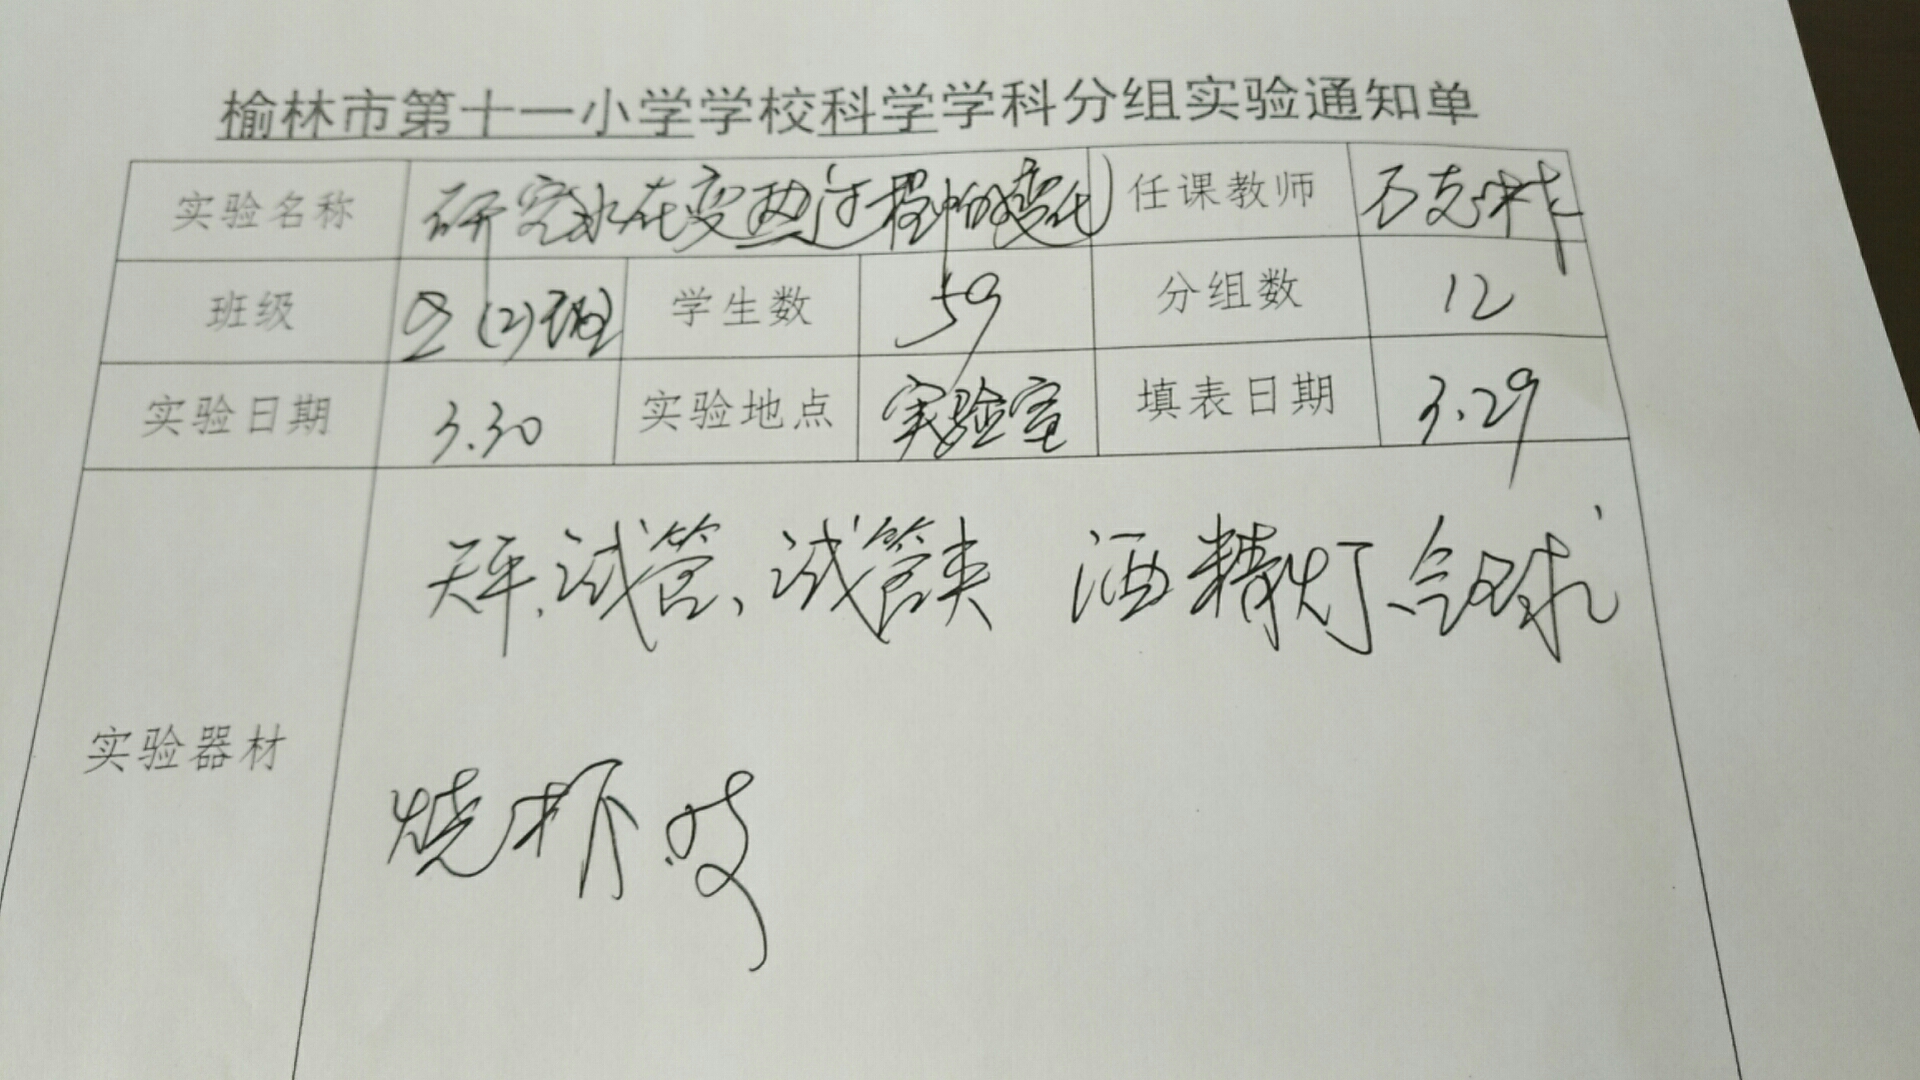 榆林市第十一小学学校科学学科分组实验通知单
实验名称 研究水在变热过程中的变化 任课教师
班级 五(2)班 学生数 59 分组数 12
实验日期 3.30 实验地点 实验室 填表日期 3.29
天平、试管、试管夹 酒精灯、气球
实验器材
烧杯